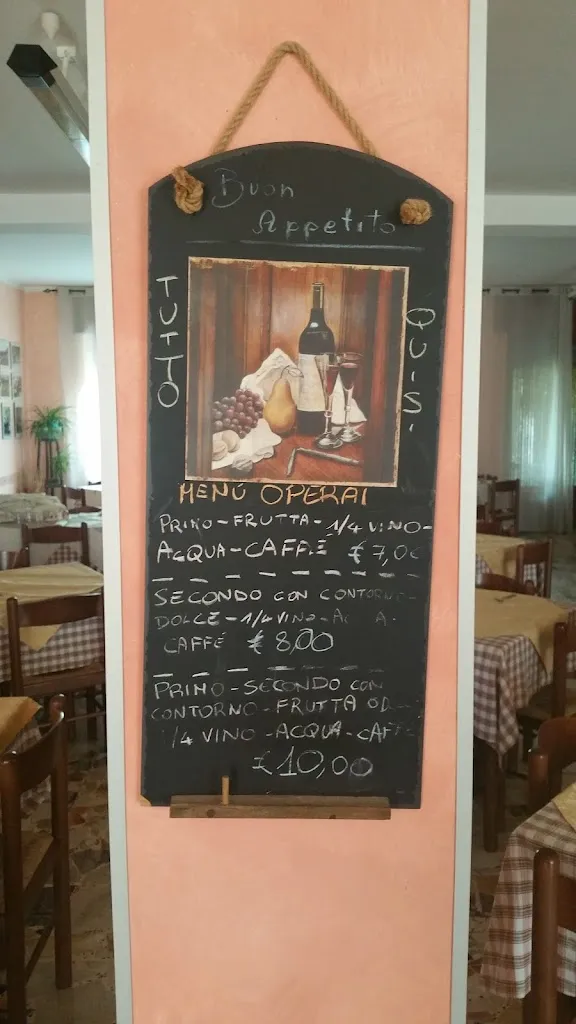 Buon
Appetito
TUTTO
QUIS.
MENÚ OPERAI
PRIMO-FRUTTA-1/4 VINO-
ACQUA-CAFFÈ €7,00
SECONDO CON CONTORNO-
DOLCE-1/4 VINO-
CAFFÈ €8,00
PRIMO-SECONDO CON
CONTORNO-FRUTTA
1/4 VINO-ACQUA-CAFFÈ
€10,00